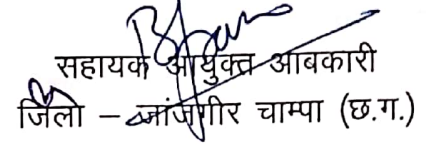 सहायक आयुक्त आबकारी
जिला – जांजगीर चाम्पा (छ.ग.)